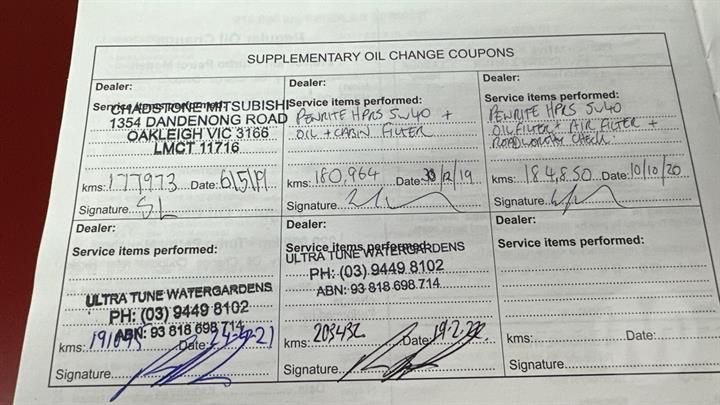 SUPPLEMENTARY OIL CHANGE COUPONS
Dealer:
Service items performed:
CHADSTONE MITSUBISHI
1354 DANDENONG ROAD
OAKLEIGH VIC 3166
LMCT 11716
kms: 177973 Date: 6/5/19
Signature
SL
Dealer:
Service items performed:
PENRITE HPRS 5W40 +
OIL + CABIN FILTER
kms: 180,964 Date: 30/12/19
Signature
Dealer:
Service items performed:
PENRITE HPRS 5W40
OIL FILTER + AIR FILTER +
ROADWORTHY CHECK
kms: 184,850 Date: 10/10/20
Signature
Dealer:
Service items performed:
ULTRA TUNE WATERGARDENS
PH: (03) 9449 8102
ABN: 93 818 698 714
kms: Date:
Signature
Dealer:
Service items performed:
ULTRA TUNE WATERGARDENS
PH: (03) 9449 8102
ABN: 93 818 698 714
kms: 203432 Date: 19-2-22
Signature
Dealer:
Service items performed:
kms: Date:
Signature